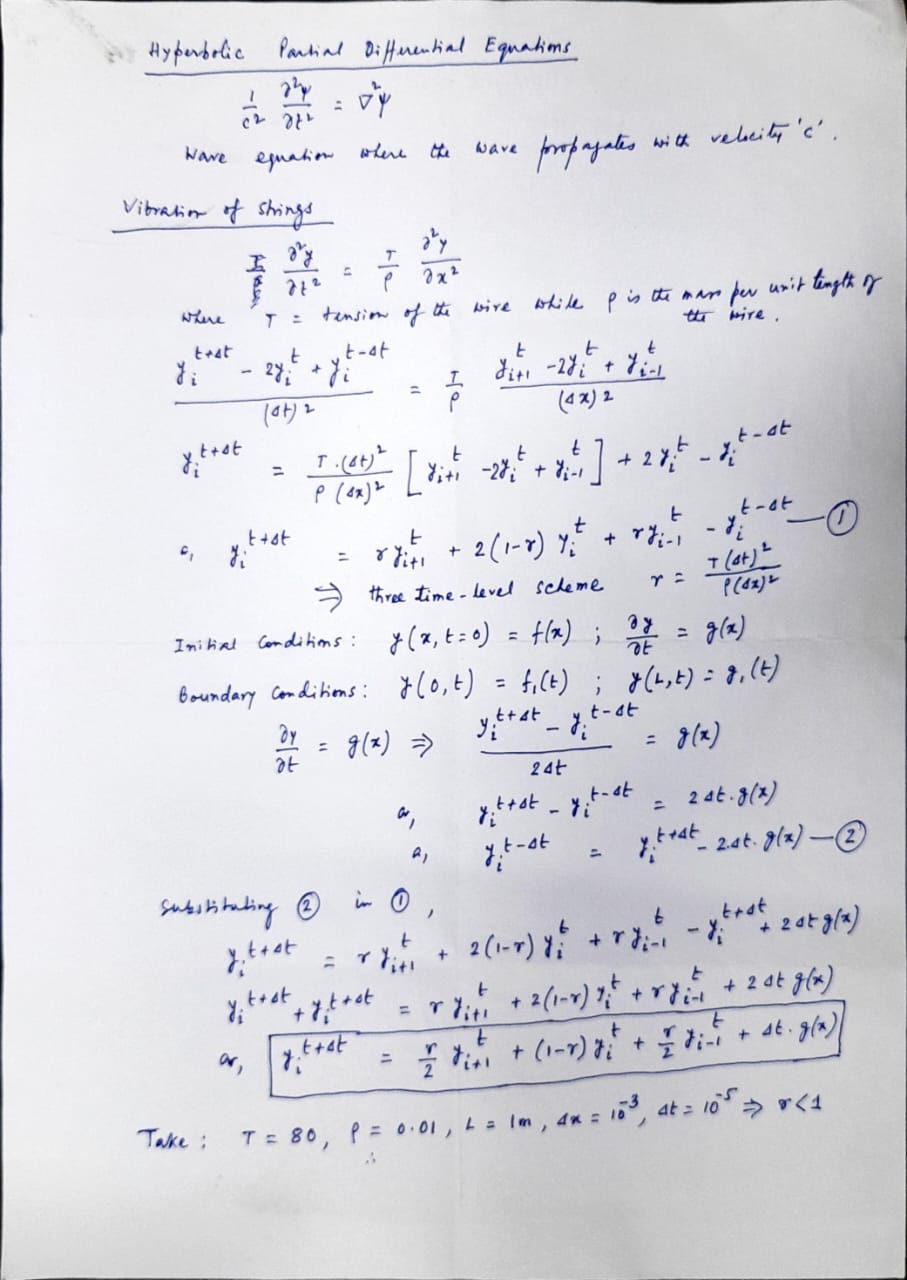 Hyperbolic Partial Differential Equations
1/c² ∂²ψ/∂t² = ∇²ψ
Wave equation where the wave propagates with velocity 'c'.
Vibration of strings
∂²y/∂t² = T/ρ ∂²y/∂x²
where T = tension of the wire while ρ is the mass per unit length of
the wire.
(y_i^{t+Δt} - 2y_i^t + y_i^{t-Δt})/(Δt)² = T/ρ (y_{i+1}^t - 2y_i^t + y_{i-1}^t)/(Δx)²
y_i^{t+Δt} = T.(Δt)²/ρ(Δx)² [y_{i+1}^t - 2y_i^t + y_{i-1}^t] + 2y_i^t - y_i^{t-Δt}
or, y_i^{t+Δt} = r y_{i+1}^t + 2(1-r) y_i^t + r y_{i-1}^t - y_i^{t-Δt} — ①
⇒ three time-level scheme r = T(Δt)²/ρ(Δx)²
Initial Conditions: y(x,t=0) = f(x) ; ∂y/∂t = g(x)
Boundary Conditions: y(0,t) = f₁(t) ; y(L,t) = g₁(t)
∂y/∂t = g(x) ⇒ (y_i^{t+Δt} - y_i^{t-Δt})/2Δt = g(x)
or, y_i^{t+Δt} - y_i^{t-Δt} = 2Δt.g(x)
or, y_i^{t-Δt} = y_i^{t+Δt} - 2Δt.g(x) — ②
Substituting ② in ①,
y_i^{t+Δt} = r y_{i+1}^t + 2(1-r) y_i^t + r y_{i-1}^t - y_i^{t+Δt} + 2Δt g(x)
y_i^{t+Δt} + y_i^{t+Δt} = r y_{i+1}^t + 2(1-r) y_i^t + r y_{i-1}^t + 2Δt g(x)
or, y_i^{t+Δt} = r/2 y_{i+1}^t + (1-r) y_i^t + r/2 y_{i-1}^t + Δt.g(x)
Take : T = 80, ρ = 0.01, L = 1m, Δx = 10⁻³, Δt = 10⁻⁵ ⇒ r<1